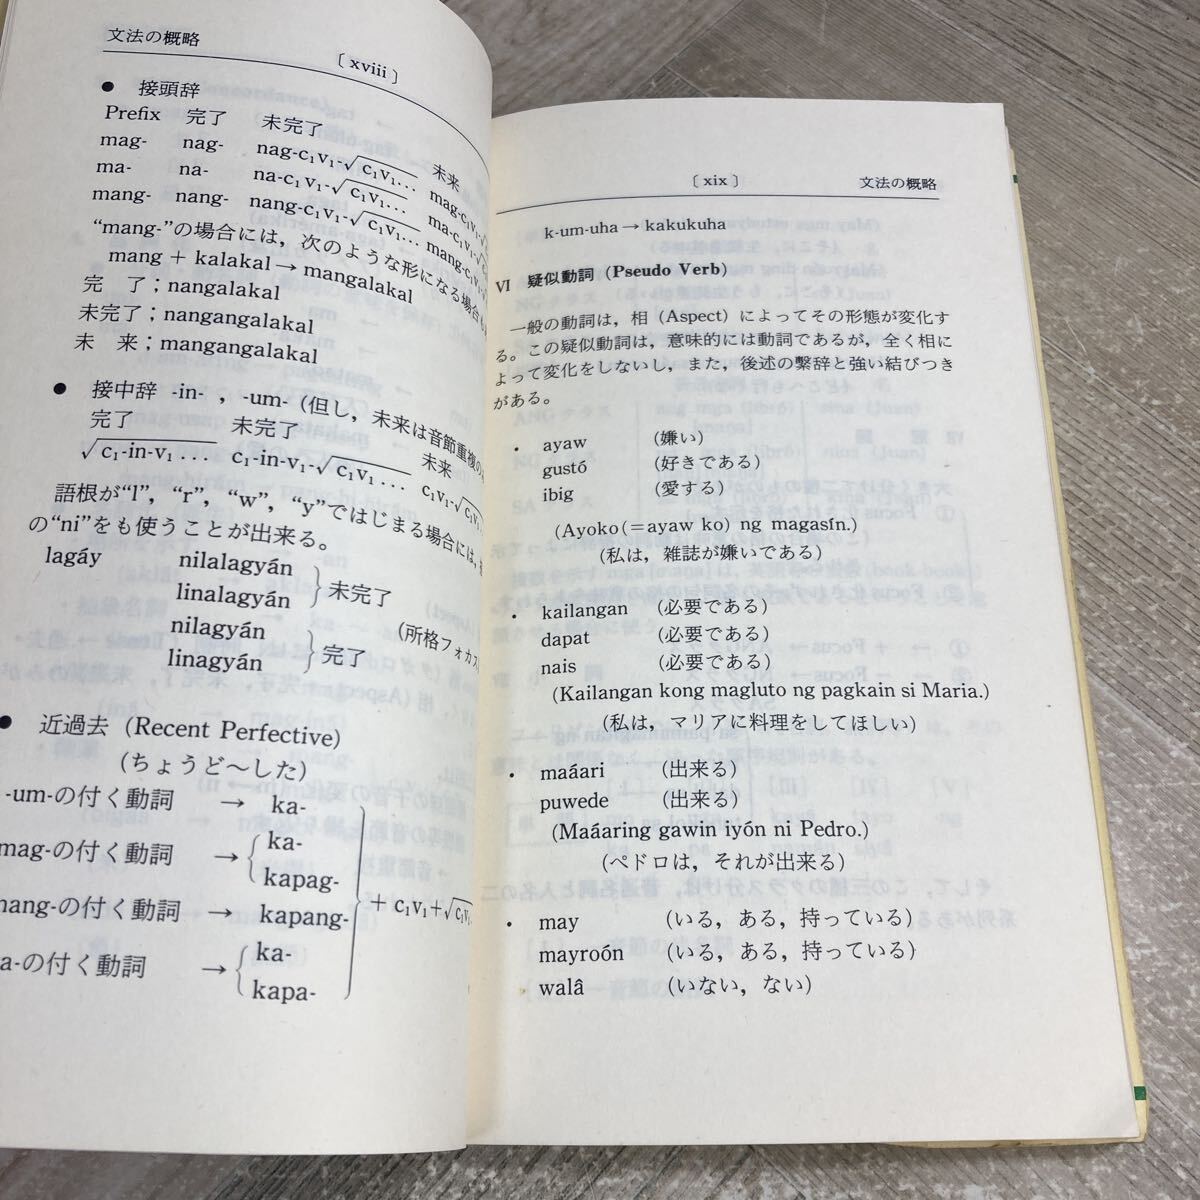 文法の概略
〔 xviii 〕
● 接頭辞
Prefix 完了 未完了 未来
mag- nag- nag-c₁v₁-√c₁v₁… mag-c₁v₁-
ma- na- na-c₁v₁-√c₁v₁… ma-c₁v₁-
mang- nang- nang-c₁v₁-√c₁v₁… mang-c₁v₁-
“mang-”の場合には，次のような形になる場合も
mang + kalakal → mangalakal
完 了；nangalakal
未完了；nangangalakal
未 来；mangangalakal
● 接中辞 -in-，-um-（但し，未来は音節重複の
完了 未完了 未来
√c₁-in-v₁… c₁-in-v₁-√c₁v₁… c₁v₁-√
語根が“l”，“r”，“w”，“y”ではじまる場合には，
の“ni”をも使うことが出来る。
lagáy nilalagyán
linalagyán } 未完了
nilagyán
linagyán } 完了 （所格フォカス
● 近過去（Recent Perfective）
（ちょうど～した）
-um-の付く動詞 → ka-
mag-の付く動詞 → { ka-
kapag-
mang-の付く動詞 → kapang- } + c₁v₁+√c₁v₁
a-の付く動詞 → { ka-
kapa-
〔 xix 〕 文法の概略
k-um-uha → kakukuha
VI 疑似動詞（Pseudo Verb）
一般の動詞は，相（Aspect）によってその形態が変化す
る。この疑似動詞は，意味的には動詞であるが，全く相に
よって変化をしないし，また，後述の繫辞と強い結びつき
がある。
・ ayaw （嫌い）
gustó （好きである）
ibig （愛する）
（Ayoko (=ayaw ko) ng magasín.）
（私は，雑誌が嫌いである）
・ kailangan （必要である）
dapat （必要である）
nais （必要である）
（Kailangan kong magluto ng pagkain si Maria.）
（私は，マリアに料理をしてほしい）
・ maáari （出来る）
puwede （出来る）
（Maáaring gawin iyón ni Pedro.）
（ペドロは，それが出来る）
・ may （いる，ある，持っている）
mayroón （いる，ある，持っている）
walâ （いない，ない）